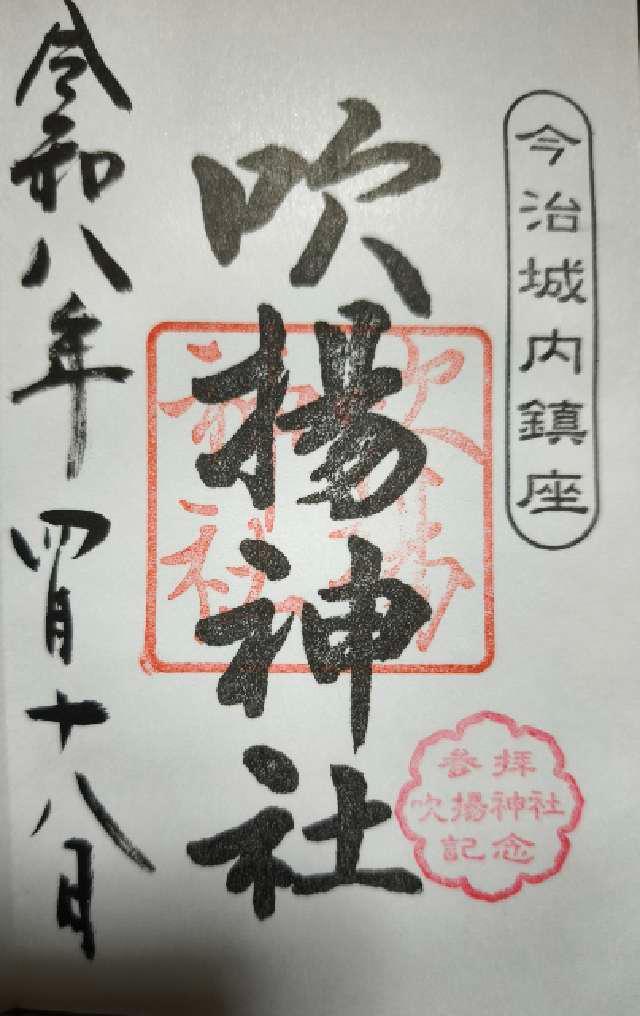 今治城内鎮座
吹揚神社
吹揚
神社
参拝
吹揚神社
記念
令和八年四月十八日